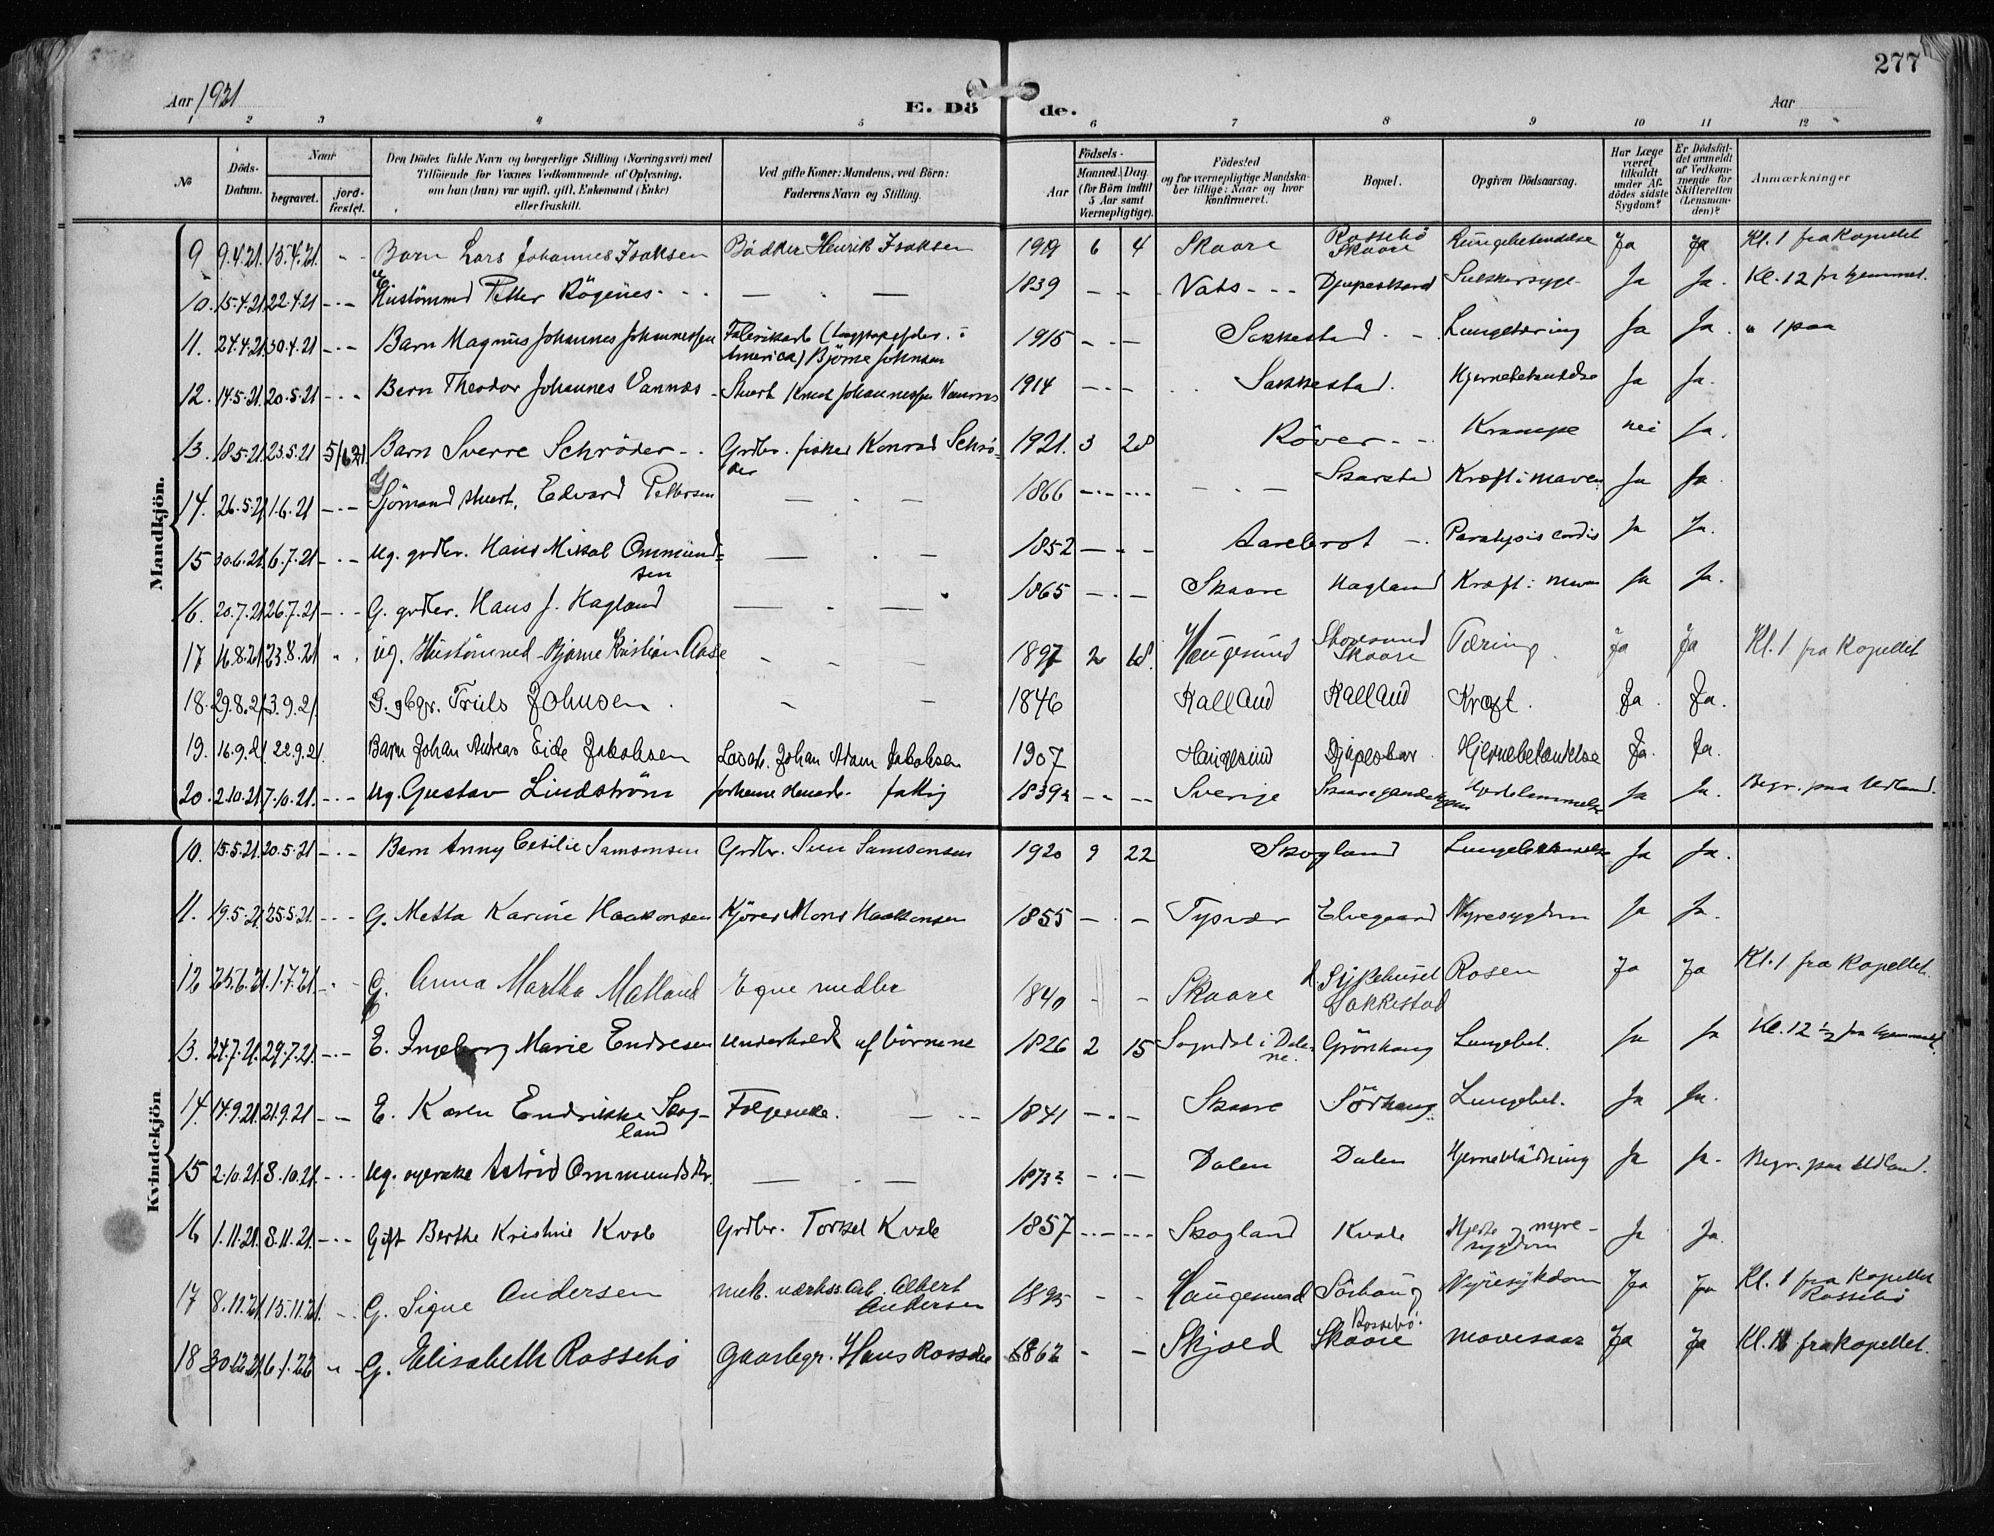 277
Aar 1921
E. Dö de.
Aar
1 2 3 4 5 6 7 8 9 10 11 12
No
Döds-Datum.
Naar
begravet.
jord-fæstet.
Den Dödes fulde Navn og borgerlige Stilling (Næringsvei) med
Tilföiende for Voxnes Vedkommende af Oplysning,
om han (hun) var ugift, gift, Enkemand (Enke)
eller fraskilt.
Ved gifte Koner: Mandens, ved Börn:
Faderens Navn og Stilling.
Födsels-
Aar
Maaned. Dag
(for Börn indtil
5 Aar samt
Værnepligtige).
Födested
og for værnepligtige Mandskaber tillige: Naar og hvor
konfirmeret.
Bopæl.
Opgiven Dödsaarsag.
Har Læge
været
tilkaldt
under Afdödes sidste
Sygdom?
Er Dödsfaldet anmeldt
af Vedkommende for
Skifteretten
(Lensmanden)?
Anmærkninger
Mandkjön.
9 9.4.21. 15.4.21. - - Barn Lars Johannes Isaksen Bödker Henrik Isaksen 1919 6 4 Skaare Rossebö Skaare Lungebetendelse Ja Ja Kl. 1 fra kapellet
10. 15.4.21 22.4.21 - - - E Hustömmd Petter Rögenes - - - — - — 1839 - - - Vats - - - Djupeskard Sukkersyge Ja Ja. Kl. 12 fra hjemmet.
11. 24.4.21 30.4.21 - - - Barn Magnus Johannes Johannessen America) Björne Johnsen 1915 - - - Sakkestad - - Lungetæring Ja Ja. " 1 paa
12. 14.5.21. 20.5.21 - - - Barn Theodor Johannes Vannes - Stuert Knut Johannessen Vannes 1914 - - - Sakkestad. Hjernebetendelse Ja Ja.
13. 18.5.21. 23.5.21 5/6 21. Barn Sverre Schröder - - Grdbr. fisker Konrad Schrö-
der 1921. 3 28 Röver - - Krampe nei Ja.
14. 26.5.21 1.6.21 - - - G Sjömand stuert. Edvard Pettersen — - — 1866 - - - - - - — - — Skarstad Kræft i maven Ja Ja.
15 30.6.21. 6.7.21 - - - Ug. grdbr. Hans Mikal Ommund-
sen — . — 1852 - - - Aarebrot - - Paralysis cordis Ja Ja.
16. 20.7.21 26.7.21 - - - G. grdbr. Hans J. Hagland — . — 1865 - - - Skaare Hagland Kræft i maven Ja Ja.
17 16.8.21 23.8.21 - - Ug. Hustömmed Bjarne Kristian Aase - - - 1897 2 18. Haugesund Skaare Tæring. Ja Ja Kl. 1 fra kapellet
18. 29.8.21 3.9.21. G. gbgr. Truls Johnsen. - - 1846 Kalland Kalland Kræft. Ja. Ja.
19. 16.9.21 22.9.21. Barn Johan Andreas Eide Jakobsen Johan Adam Jakobsen 1907 Haugesund Djupeskar Hjernebetændelse Ja. Ja.
20. 2.10.21 7.10.21. - - - Ug. Gustav Lindström fattig 1839 - - - - Sverige Hjertelammelse Ja Ja. Begr. paa Udland.
Kvindekjön
10. 15.5.21. 20.5.21 - - - Barn Anny Cesilie Samsonsen Grdbr. Sven Samsonsen 1920 9 22 Skogland Lungebetændelse Ja Ja.
11. 19.5.21 25.5.21. - - - G. Metta Karine Haakonsen Kjörer Mons Haakonsen 1855 - . - Tysvær Elvegaard Nyresygdom Ja Ja.
12 25.6.21. 1.7.21 - - - G. Anna Martha Matland Egne midler 1840 - - Skaare Sygehuset
Sakkestad Rosen Ja Ja Kl. 1 fra kapellet.
13. 24.7.21. 29.7.21. - - - E. Ingeborg Marie Endresen underholdt af börnene 1826 2 15 Sogndal i Dale-
ne. Grönhaug Lungebet. Ja Ja Kl. 12 1/2 fra hjemmet.
14. 14.9.21 21.9.21 - - E. Karen Endrikke Skog-
land Folgeenke. — - - 1841 - - - Skaare Sörhaug Lungebet. Ja Ja.
15 2.10.21. 8.10.21. - - - Ug. syerske Astrid Ommundsdtr. — . — 1873 - . - Dalen Dalen Hjerneblödning Ja Ja. Begr. paa Udland.
16 1.11.21. 8.11.21. - - - Gift Berthe Kristine Kvale Grdbr. Torkel Kvale 1857 - - - - - - Skogland Kvale Hjerte og nyre-
sygdom Ja Ja.
17 8.11.21. 15.11.21. - - G. Signe Andersen mek. værkss. arb. Albert
Andersen 1895 - - Haugesund Sörhaug Nyresykdom Ja Ja Kl. 1 fra kapellet
Rossebö
18 30.12.21. 6.1.22 - G. Elisabeth Rossebö gaardbgr. Hans Rossebö 1862 - - Skjold Rossebö.
Skaare mavesaar Ja Ja Kl. 11 fra kapellet.